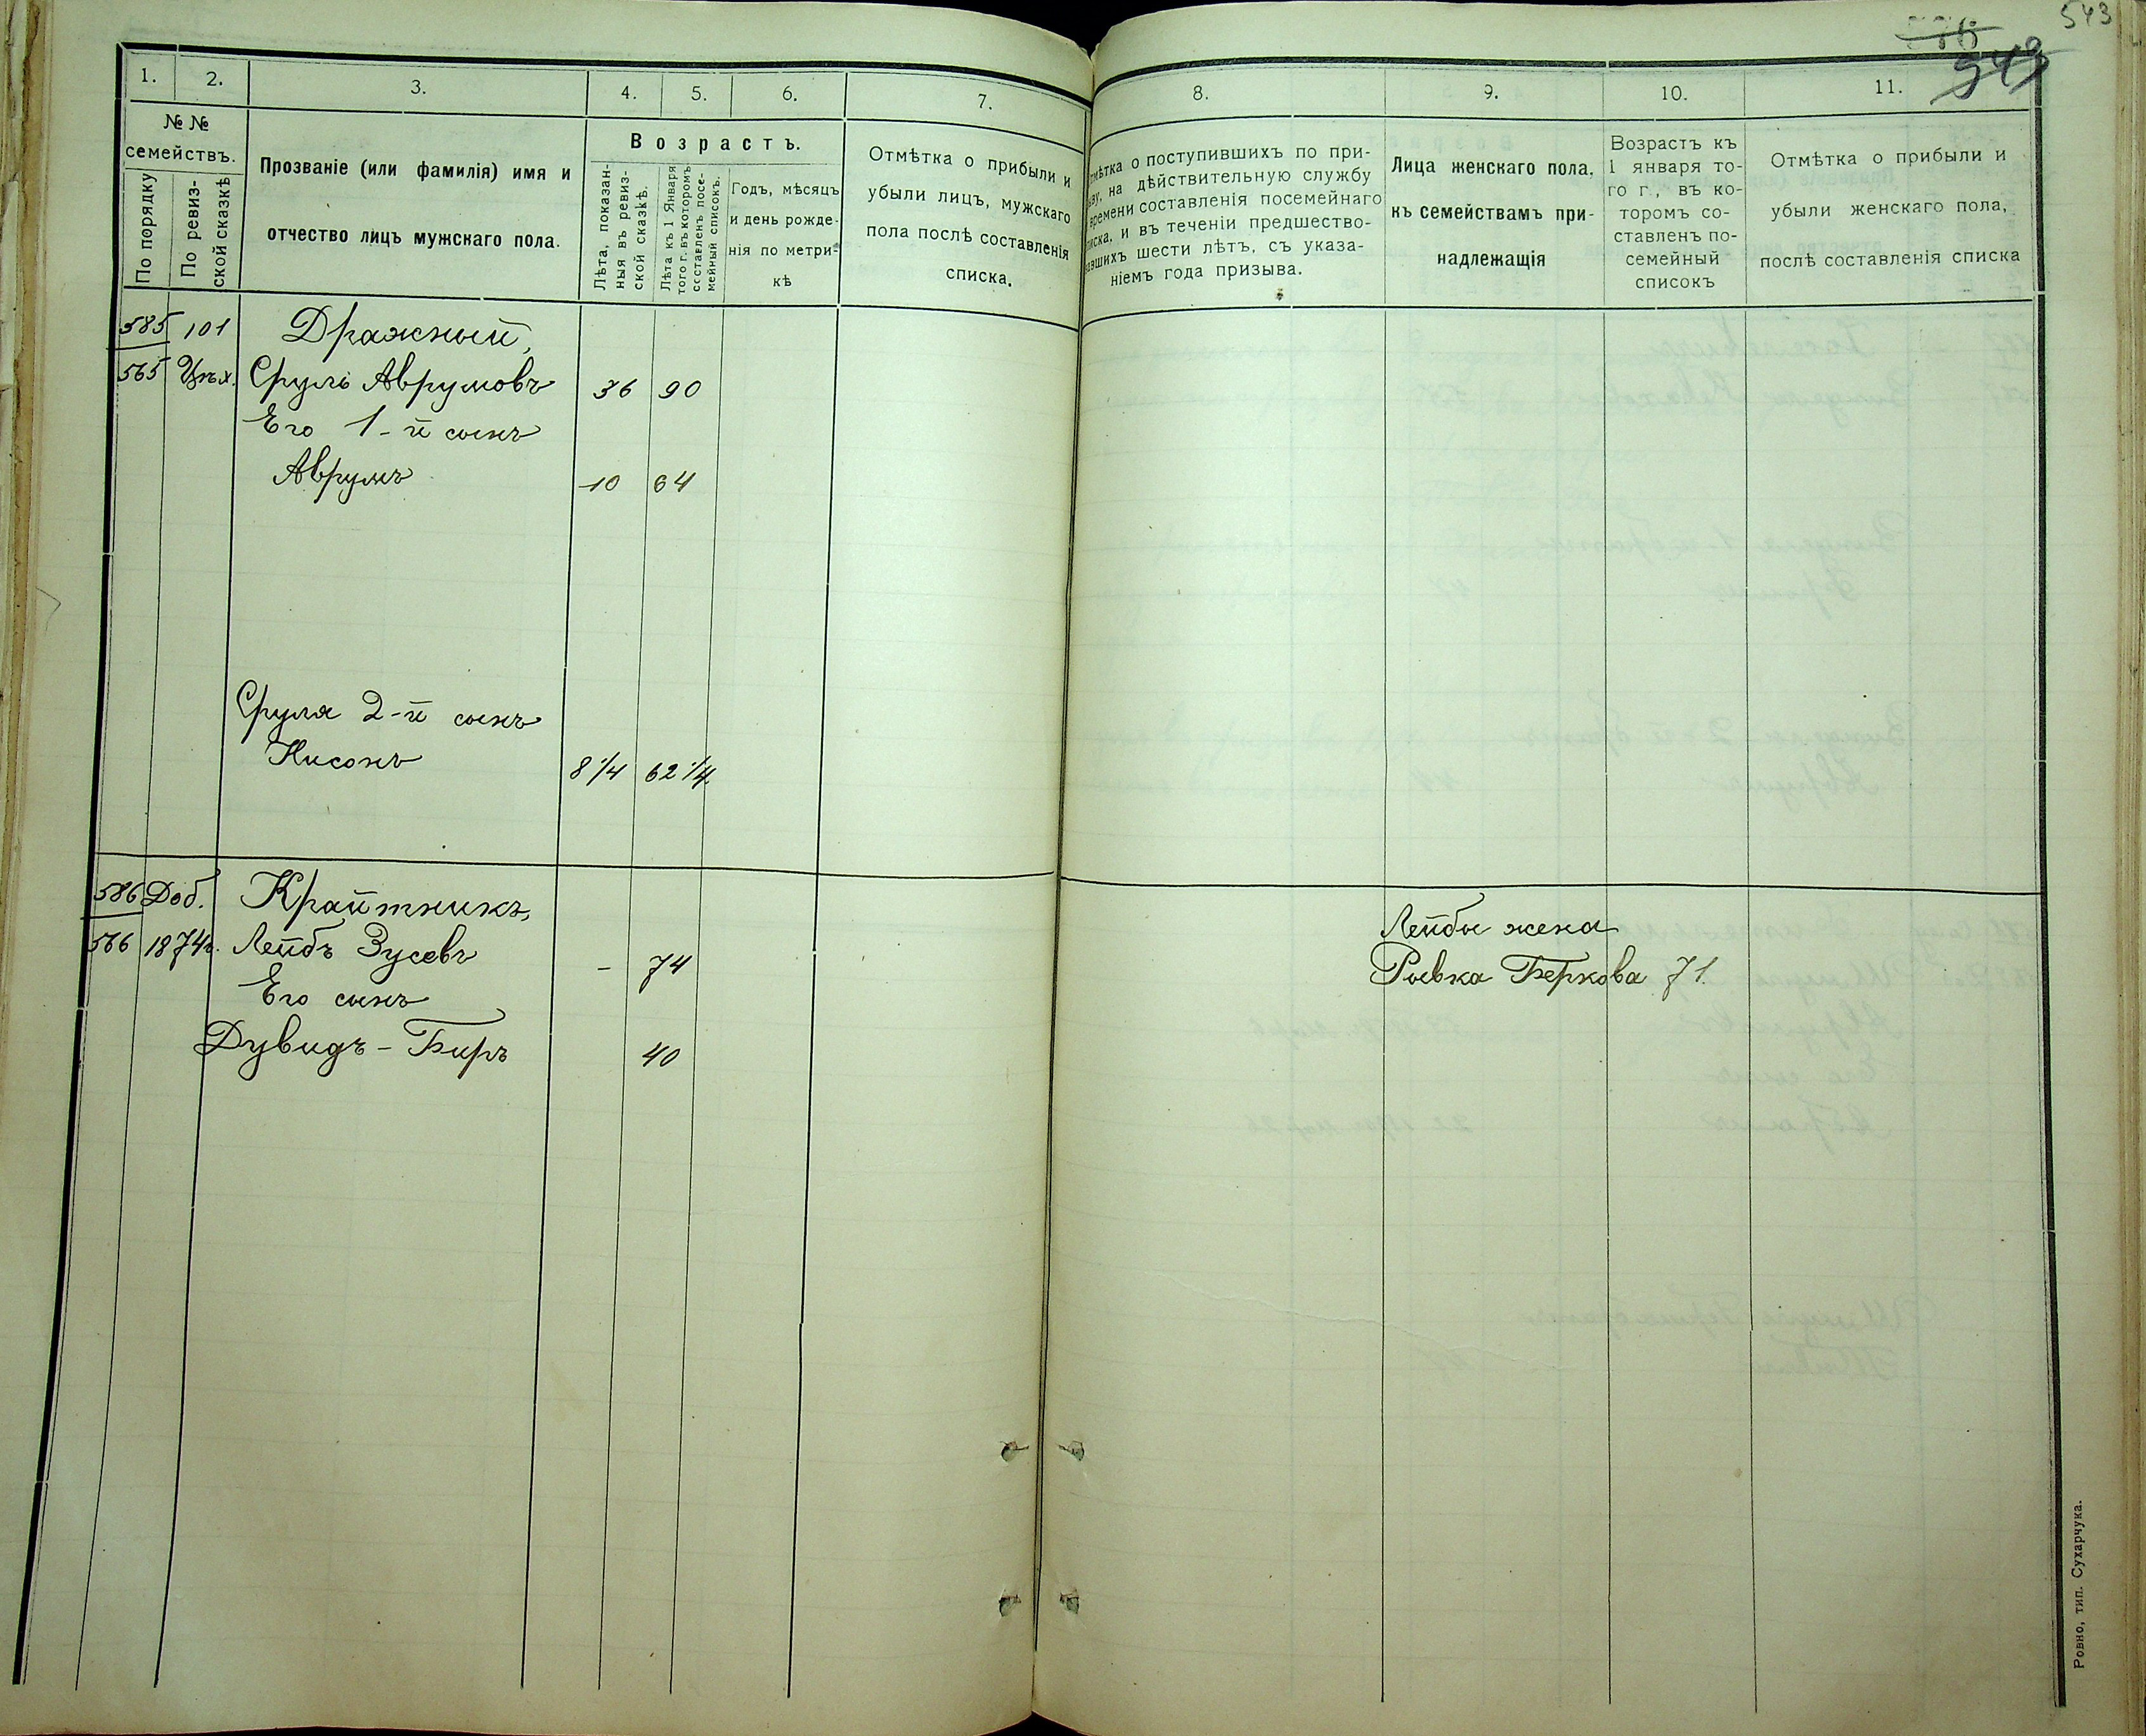 543
1.
2.
3.
4.
5.
6.
7.
№ №
семействъ.
По порядку
По ревиз-
ской сказкѣ
Прозваніе (или фамилія) имя и
отчество лицъ мужскаго пола.
Возрастъ.
Лѣта, показан-
ныя въ ревиз-
ской сказкѣ.
Лѣта къ 1 Января
того г. въ которомъ
составленъ посе-
мейный списокъ.
Годъ, мѣсяцъ
и день рожде-
нія по метри-
кѣ
Отмѣтка о прибыли и
убыли лицъ, мужскаго
пола послѣ составленія
списка.
585 101 Дражный,
565 Сруль Аврумовъ 36 90
Его 1-й сынъ
Аврумъ 10 64
Сруля 2-й сынъ
Нисонъ 8 1/4 62 1/4
586 Доб. Крайтникъ,
566 1874г. Лейбъ Зусевъ - 74
Его сынъ
Дувидъ-Биръ 40
8.
9.
10.
11.
о поступившихъ по при-
на дѣйствительную службу
времени составленія посемейнаго
и въ теченіи предшество-
шести лѣтъ, съ указа-
ніемъ года призыва.
Лица женскаго пола,
къ семействамъ при-
надлежащія
Возрастъ къ
1 января то-
го г., въ ко-
торомъ со-
ставленъ по-
семейный
списокъ
Отмѣтка о прибыли и
убыли женскаго пола,
послѣ составленія списка
Лейбы жена
Рывка Беркова 71.
Ровно, тип. Сухарчука.